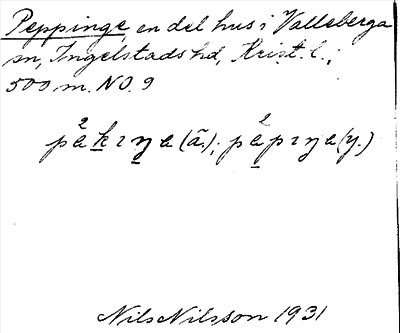 Peppinge, en del hus i Valleberga
sn, Ingelstads hd, Krist. l.;
500 m. NO. 9
pa̲²k̲ıŋ̲a (ä.); pa̲²pıŋa (y.)
Nils Nilsson 1931